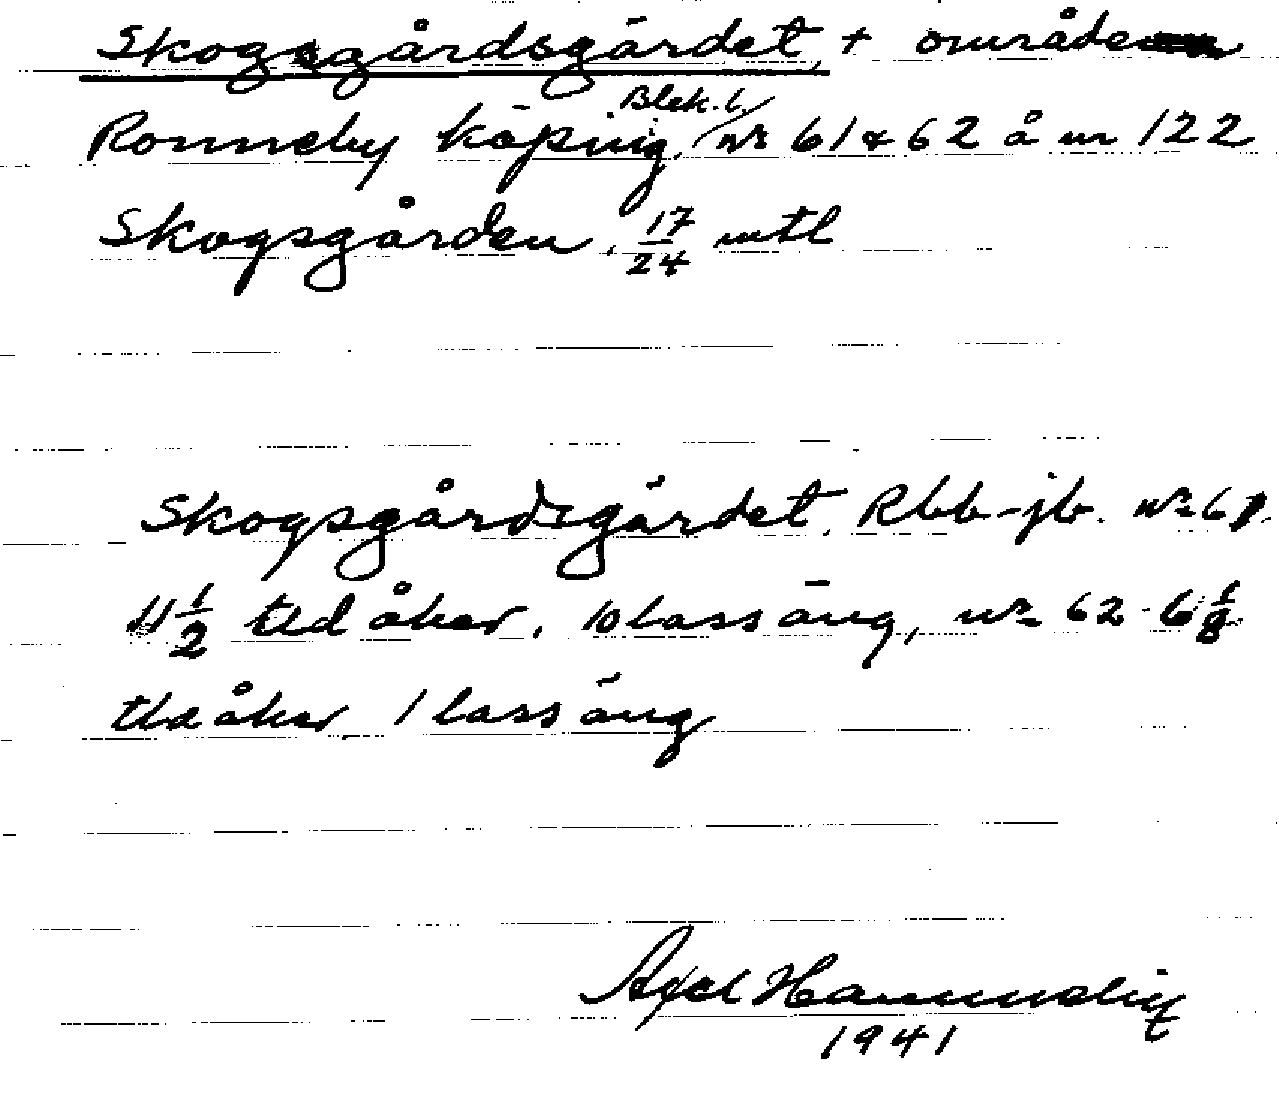 Skogsgårdsgärdet, + område
Blek. l.
Ronneby köping, nr 61 & 62 å nr 122
Skogsgården, 17/24 mtl
Skogsgårdsgärdet, Rbb-jb. nr 61.
11 1/2 tld åker, 10 lass äng, nr 62 - 6 1/8
tld åker, 1 lass äng
Axel
1941